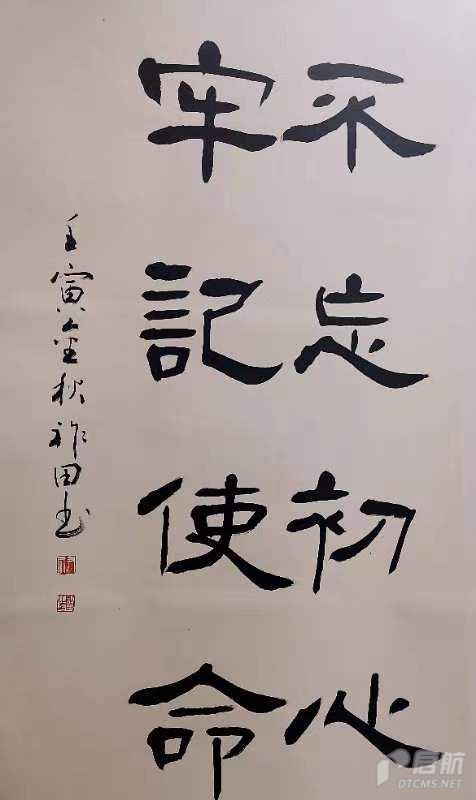 不忘初心
牢記使命
壬寅金秋祚田书
启航
DTCMS.NET